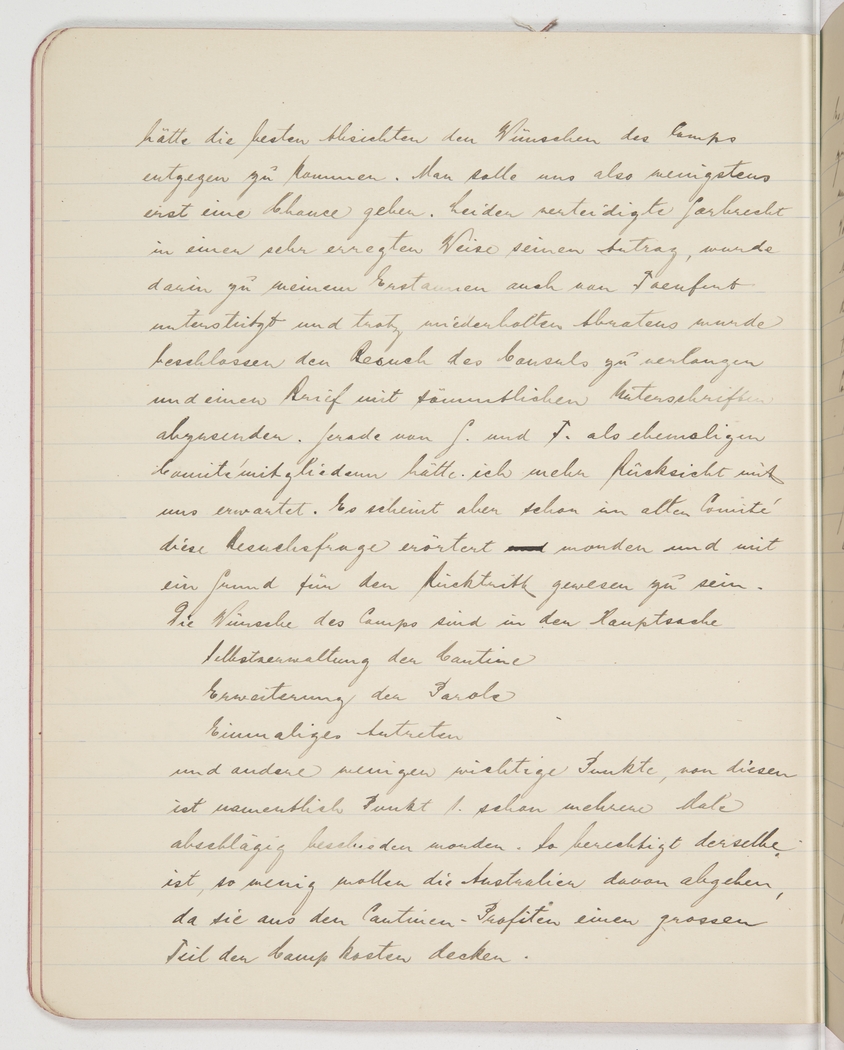 hätte die besten Absichten den Wünschen des Camps
entgegen zu kommen. Man solle uns also wenigstens
erst eine Chance geben. Leider verteidigte Garbrecht
in einer sehr erregten Weise seinen Antrag, wurde
darin zu meinem Erstaunen auch von Toenfert
unterstützt und trotz wiederholten Abratens wurde
beschlossen den Besuch des Consuls zu verlangen
und einen Brief mit sämmtlichen Unterschriften
abzusenden. Gerade von G. und T. als ehemaligen
Comitémitgliedern hätte ich mehr Rücksicht mit
uns erwartet. Es scheint aber schon im alten Comité
diese Besuchsfrage erörtert worden und mit
ein Grund für den Rücktritt gewesen zu sein.
Die Wünsche des Camps sind in der Hauptsache
Selbstverwaltung der Cantine
Erweiterung der Parole
Einmaliges Antreten
und andere weniger wichtige Punkte, von diesen
ist namentlich Punkt 1. schon mehrere Male
abschlägig beschieden worden. So berechtigt derselbe
ist, so wenig wollen die Australier davon abgehen,
da sie aus den Cantinen-Profiten einen grossen
Teil der Campkosten decken.